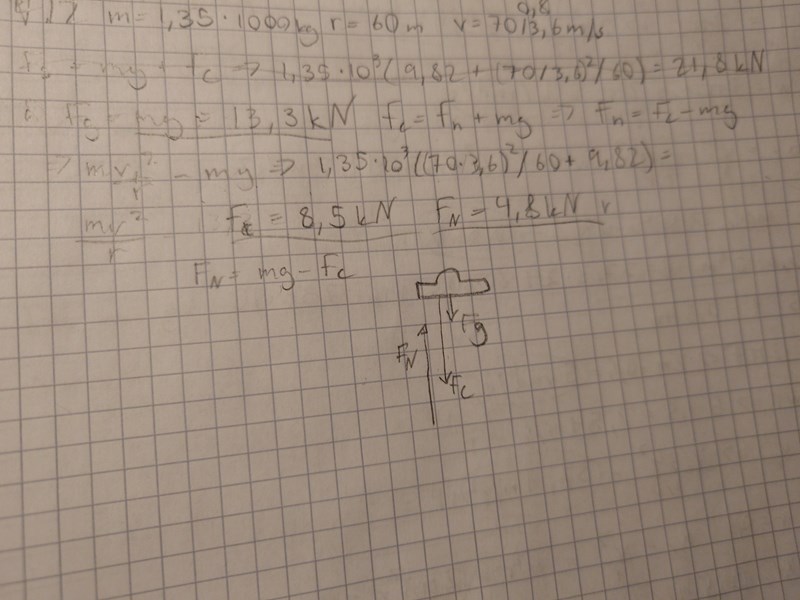 0,8
m = 1,35 · 1000kg r = 60m v = 70/3,6 m/s
+ mg + fc => 1,35·10³(9,82 + (70/3,6)²/60) = 21,8 kN
mg = 13,3 kN fc = fn + mg => Fn = Fc - mg
=> mv²/r - mg => 1,35·10³((70·3,6)²/60 + 9,82) =
mv²/r fc = 8,5 kN FN = 4,8 kN
FN = mg - fc
Fg
FN
Fc